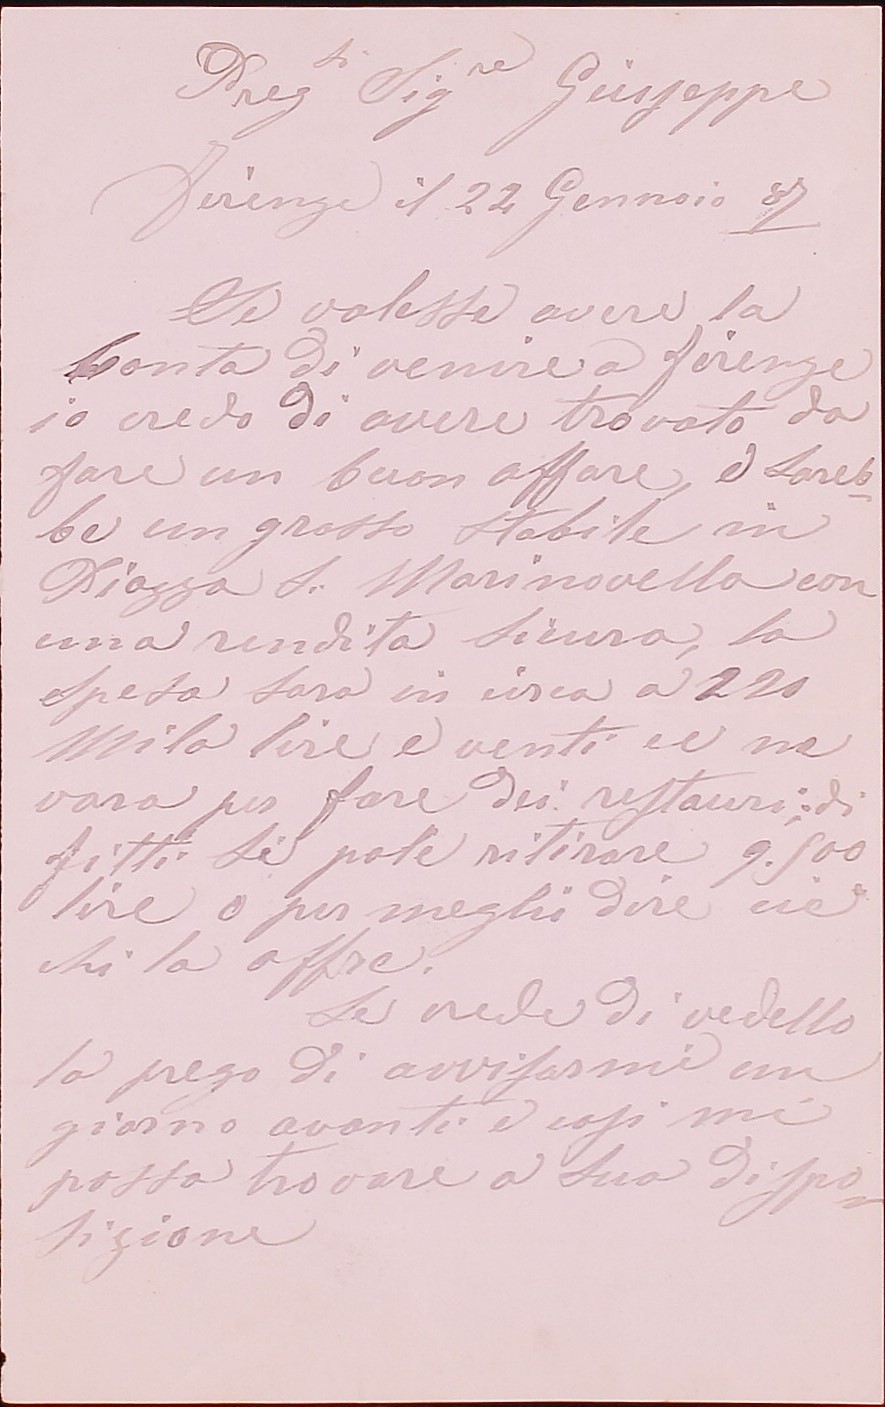 Preg.ti Sigre Giuseppe
Firenze il 22 Gennaio 87
Se volesse avere la
bonta di venire a Firenze
io credo di avere trovato da
fare un buon affare, e sareb-
be un grosso stabile in
Piazza S. Marinovella con
una rendita sicura, la
spesa sara in circa a 220
Mila lire e venti ce ne
vara per fare dei restauri: di
fitti si pole ritirare 9.500
lire o per meglio dire cie
chi la offre.
Se crede di vedello
la prego di avvisarmi un
giorno avanti e cosi mi
posso trovare a sua dispo-
sizione